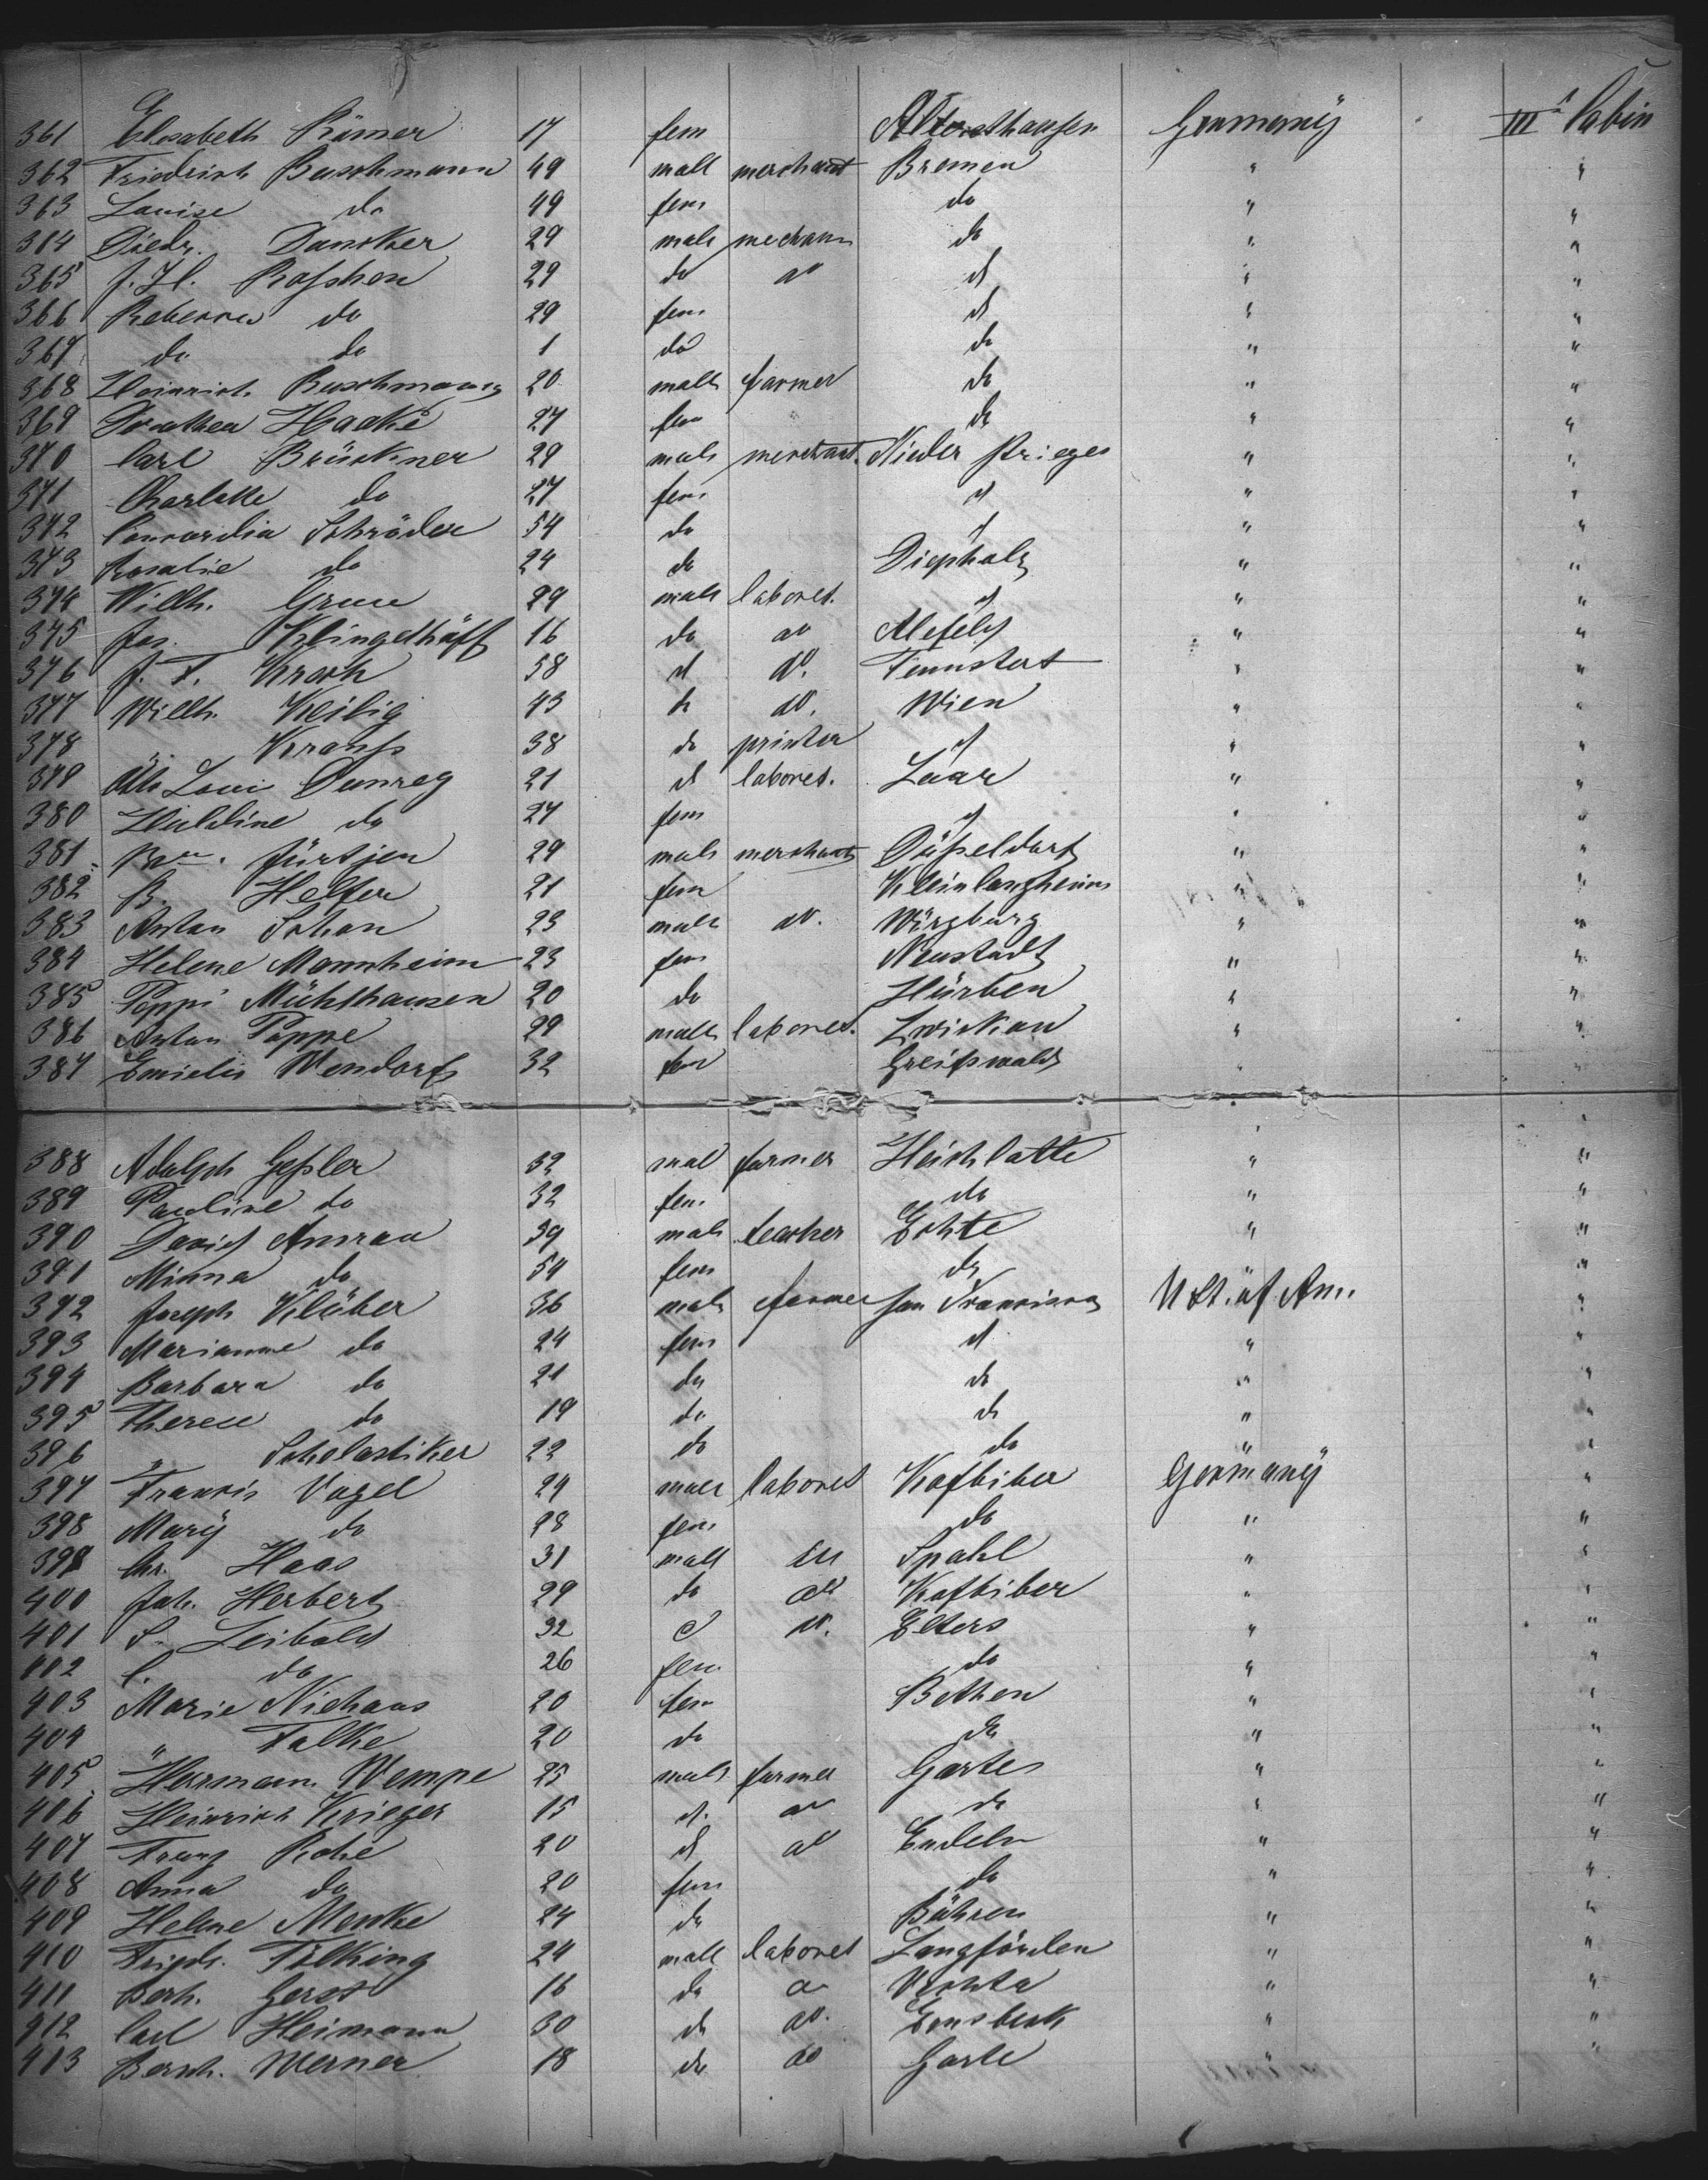 361 Elisabeth Römer 17 fem Altersthausen Germany III Cabin
362 Friedrich Buschmann 49 mall merchant Bremen " "
363 Louise do 49 fem do " "
364 Diedr. Dancker 29 male mechan do " "
365 J. H. Raschen 29 do do d " "
366 Rebecca do 29 fem d " "
367 do do 1 do do " "
368 Heinrich Buschmann 20 male farmer do " "
369 Dorothea Haake 27 fem do " "
370 Carl Brückner 29 male merchant Nieder Strieges " "
371 Charlotte do 27 fem d " "
372 Concordia Schröder 54 do d " "
373 Rosalie do 24 do Diepholz " "
374 Willh. Grue 29 male labores. d " "
375 Jos. Klingelhöff 16 do do Alsfeld " "
376 J. F. Krech 58 d do. Tennstet " "
377 Willh. Keilig 43 do do. Wien " "
378 Kranss 38 do printer d " "
379 Loui 21 d labores. Laar " "
380 Huldine do 27 fem d " "
381 Jürtjen 29 male merchant Düsseldorf " "
382 B. Helfer 21 fem Kleinlangheim " "
383 Anton Schon 23 male do. Würzburg " "
384 Helene Mannheim 23 fem Neustadt " "
385 Peppi Mühlhausen 20 do Hürben " "
386 Anton Poppe 29 male labores. Zwickau " "
387 Emielie Wendorf 32 fem Greifswald " "
388 Adolph Gessler 32 mal farmer " "
389 Pauline do 32 fem do " "
390 David Amrau 39 male teacher Echte " "
391 Minna do 54 fem do "
392 Joseph Klüber 36 male farmer San Francisco U St. of Am. "
393 Marianne do 24 fem d " "
394 Barbara do 21 do do " "
395 Therese do 19 do do " "
396 " Scholastiker 22 do do " "
397 Francis Vogel 29 male labores Kafbiber Germany "
398 Mary do 28 fem do " "
398 Chr. Haas 31 mall do Spahl " "
400 Joh. Herbert 29 do do Kafbiber " "
401 S. Leibold 32 d do. Elters " "
402 C. do 26 fem do " "
403 Marie Niehaus 20 fem Bethen " "
404 " Falke 20 do do " "
405 Herrmann Wempe 25 male farmer Garte " "
406 Heinrich Krieger 15 d. do do " "
407 Franz Rohe 20 d do Endeln " "
408 Anna do 20 fem do " "
409 Helene Menke 24 do Bühren " "
410 Tölking 24 male labores Langförden " "
411 Berh. Gerst 16 do do Vechta " "
412 Carl Heimann 30 do do. Emsbeck " "
413 Bernh. Werner 18 do do Garte " "